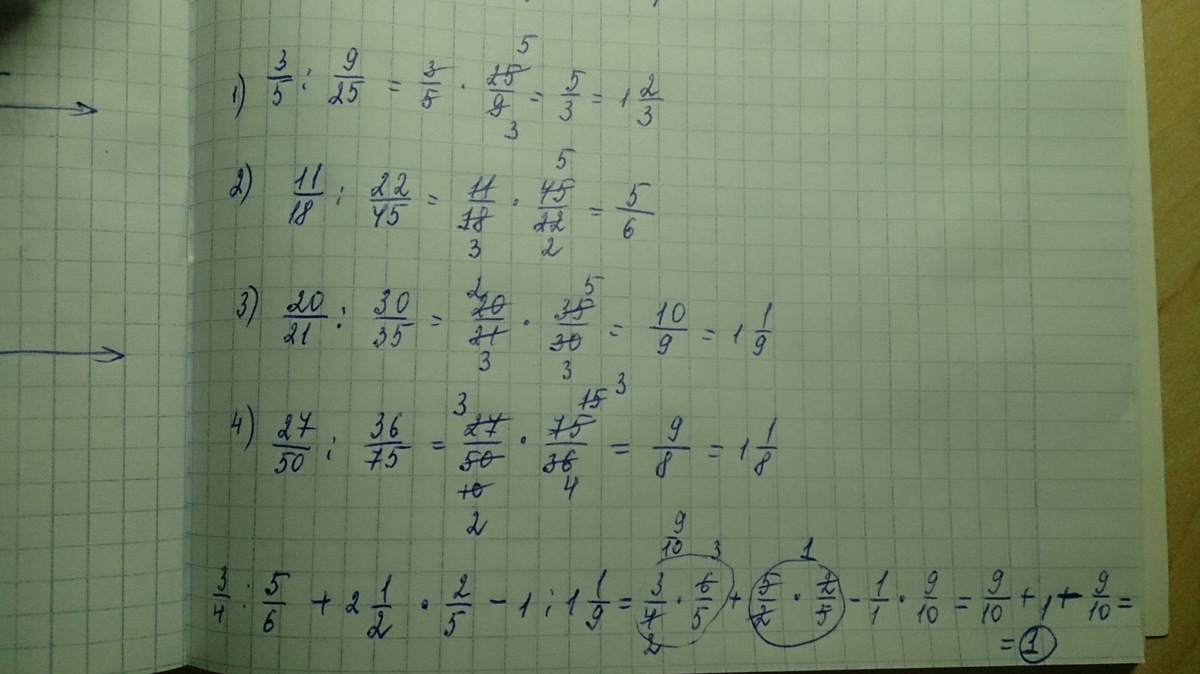 5
1) 3/5 : 9/25 = 3/5 · 25/9 = 5/3 = 1 2/3
3
5
2) 11/18 : 22/45 = 11/18 · 45/22 = 5/6
3 2
2 5
3) 20/21 : 30/35 = 20/21 · 35/30 = 10/9 = 1 1/9
3 3
3 15 3
4) 27/50 : 36/75 = 27/50 · 75/36 = 9/8 = 1 1/8
10 4
2
9/10 3 1
3/4 : 5/6 + 2 1/2 · 2/5 - 1 : 1 1/9 = 3/4 · 6/5 + 5/2 · 2/5 - 1/1 · 9/10 = 9/10 + 1 - 9/10 =
2
= 1